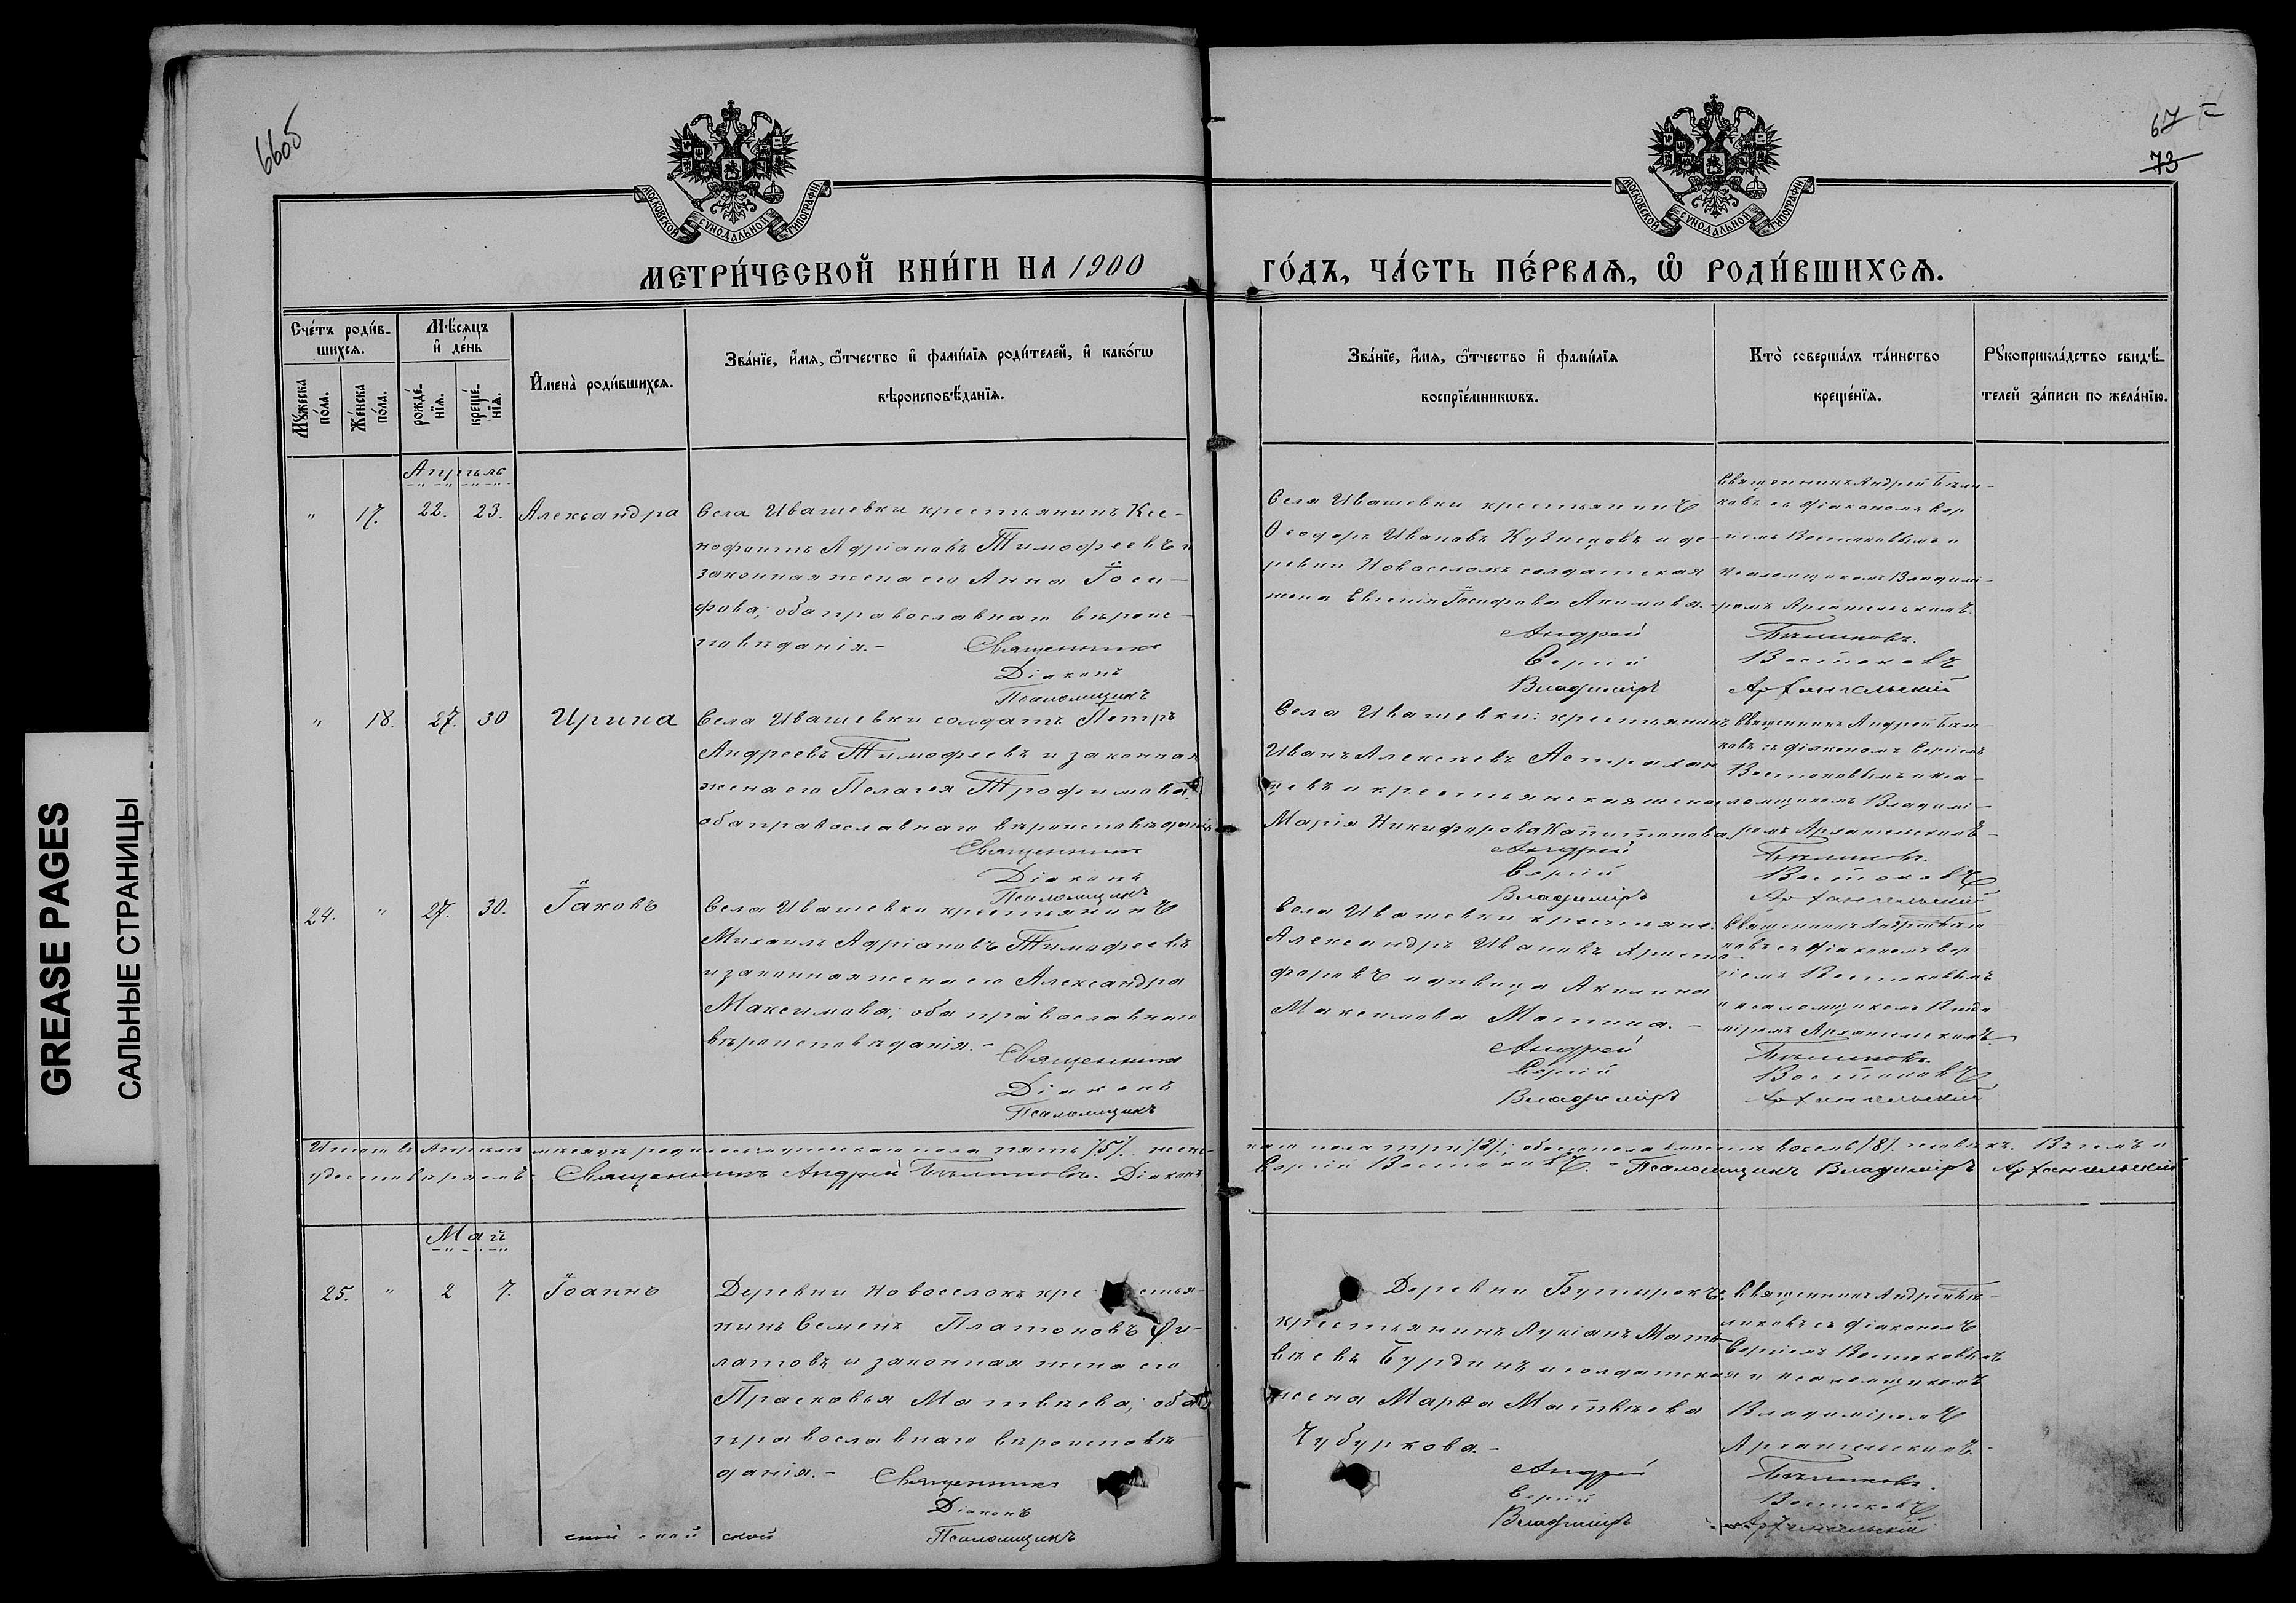 66об
67
73
МОСКОВСКОЙ СѴНОДАЛЬНОЙ ТИПОГРАФІИ
МОСКОВСКОЙ СѴНОДАЛЬНОЙ ТИПОГРАФІИ
МЕТРИ́ЧЕСКОЙ КНИ́ГИ НА 1900
ГО́ДЪ, ЧА́СТЬ ПЕ́РВАѦ, Ѡ҆ РОДИ́ВШИХСѦ.
Сче́тъ роди́в-
шихсѧ.
Мꙋ́жеска
по́ла.
Же́нска
по́ла.
Мѣ́сѧцъ
и҆ де́нь
рожде́-
нїѧ.
креще́-
нїѧ.
И҆мена̀ роди́вшихсѧ.
Зва́нїе, и҆́мѧ, ѻ҆́тчество и҆ фамі́лїѧ роди́телей, и҆ како́гѡ
вѣроисповѣ́данїѧ.
Зва́нїе, и҆́мѧ, ѻ҆́тчество и҆ фамі́лїѧ
воспрїе́мникѡвъ.
Кто̀ соверша́лъ та́инство
креще́нїѧ.
Рꙋкоприкла́дство свидѣ́-
телей за́писи по жела́нїю.
Апрѣль
" 17. 22. 23. Александра
Села Ивашевки крестьянинъ Ксе-
нофонтъ Адріановъ Тимофеевъ и
законная жена его Анна Іоси-
фова; оба православнаго вѣроис-
повѣданія.-
Священникъ
Діаконъ
Псаломщикъ
Села Ивашевки крестьянинъ
Ѳеодоръ Ивановъ Кузнецовъ и де-
ревни Новоселокъ солдатская
жена Евгенія Іосифова Акимова.-
Священникъ Андрей Бѣли-
ковъ съ діакономъ Сер
гіемъ Востоковымъ и
псаломщикомъ Владимі-
ромъ Архангельскимъ.
Андрей Бѣликовъ.
Сергій Востоковъ
Владиміръ Архангельскій
" 18. 27. 30 Ирина
Села Ивашевки солдатъ Петръ
Андреевъ Тимофеевъ и законная
жена его Пелагея Трофимова;
оба православнаго вѣроисповѣданія
Священникъ
Діаконъ
Псаломщикъ
Села Ивашевки: крестьянинъ
Иванъ Алексѣевъ Астрахан
цевъ и крестьянская жена
Марія Никифорова Капитонова
Священникъ Андрей Бѣли-
ковъ съ діакономъ Сергіемъ
Востоковымъ и пса-
ломщикомъ Владимі-
ромъ Архангельскимъ-
Андрей Бѣликовъ.
Сергій Востоковъ
Владиміръ Архангельскій
24. " 27. 30. Іаковъ
Села Ивашевки крестьянинъ
Михаилъ Адріановъ Тимофеевъ
и законная жена его Александра
Максимова; оба православнаго
вѣроисповѣданія.-
Священникъ
Діаконъ
Псаломщикъ
Села Ивашевки крестьяне:
Александръ Ивановъ Христо-
форовъ и дѣвица Акилина
Максимова Мотина.-
Священникъ Андрей Бѣли
ковъ съ діакономъ Сер
гіемъ Востоковымъ
и псаломщикомъ Влади
міромъ Архангельскимъ
Андрей Бѣликовъ.
Сергій Востоковъ
Владиміръ Архангельскій
Итого въ Апрѣлѣ мѣсяцѣ родилось мужескаго пола пять /5/. женс-
каго пола три /3/; обоего пола вмѣстѣ восемь /8/ человѣкъ. Въ чемъ и
удостовѣряемъ: Священникъ Андрей Бѣликовъ. Діаконъ
Сергій Востоковъ. - Псаломщикъ Владиміръ Архангельскій
Май
25. " 2 7. Іоаннъ
Деревни Новоселокъ кре стья-
нинъ Семенъ Платоновъ Фи-
латовъ и законная жена его
Прасковья Матвѣева; оба
православнаго вѣроисповѣ-
данія.-
Священникъ
Діаконъ
Псаломщикъ
Деревни Бутырокъ:
крестьянинъ Лукіанъ Мат-
вѣевъ Бурдинъ и солдатская
жена Марѳа Матвѣева
Чубуркова.-
Священникъ Андрей Бѣ-
ликовъ съ діакономъ
Сергіемъ Востоковымъ
и псаломщикомъ
Владиміромъ
Архангельскимъ.-
Андрей Бѣликовъ.
Сергій Востоковъ
Владиміръ Архангельскій
ской ской ской
GREASE PAGES
САЛЬНЫЕ СТРАНИЦЫ